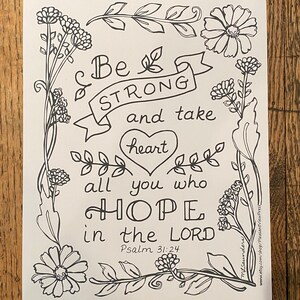 Be
STRONG
and take
heart
all you who
HOPE
in the LORD
Psalm 31:24